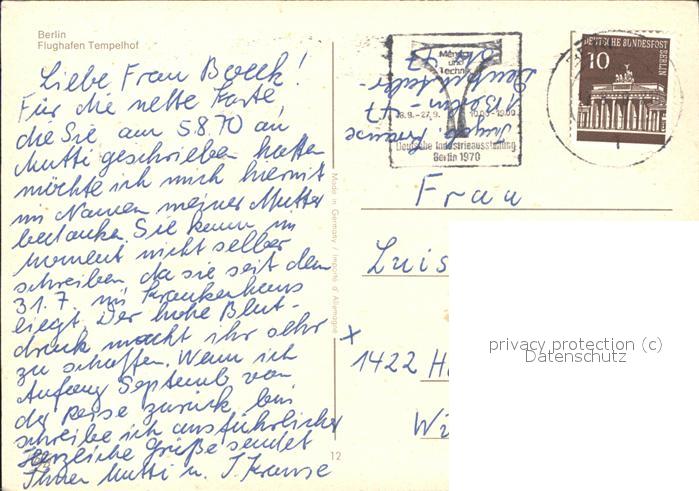 Berlin
Flughafen Tempelhof
Liebe Frau Boeck!
Für die nette Karte,
die Sie am 5.8.70 an
Mutti geschrieben hatten
möchte ich mich hiermit
im Namen meiner Mutter
bedanken. Sie kann im
Moment nicht selber
schreiben, da sie seit dem
31.7. im Krankenhaus
liegt. Der hohe Blut-
druck macht ihr sehr
zu schaffen. Wenn ich
Anfang September von
der Reise zurück bin
schreibe ich ausführlicher
Herzliche Grüße sendet
Ihnen Mutti u. I. Krause
Made in Germany / Importé d'Allemagne
12
Mensch
und
Technik
18.9.-27.9.
10.00-19.00
Deutsche Industrieausstellung
Berlin 1970
Krause
1 Berlin-47
DEUTSCHE BUNDESPOST
BERLIN
10
Frau
Luis
x
1422 H
W
privacy protection (c)
Datenschutz